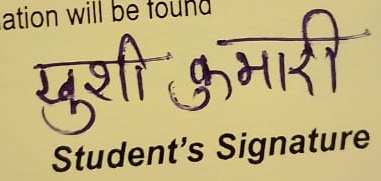 ation will be found
खुशी कुमारी
Student's Signature